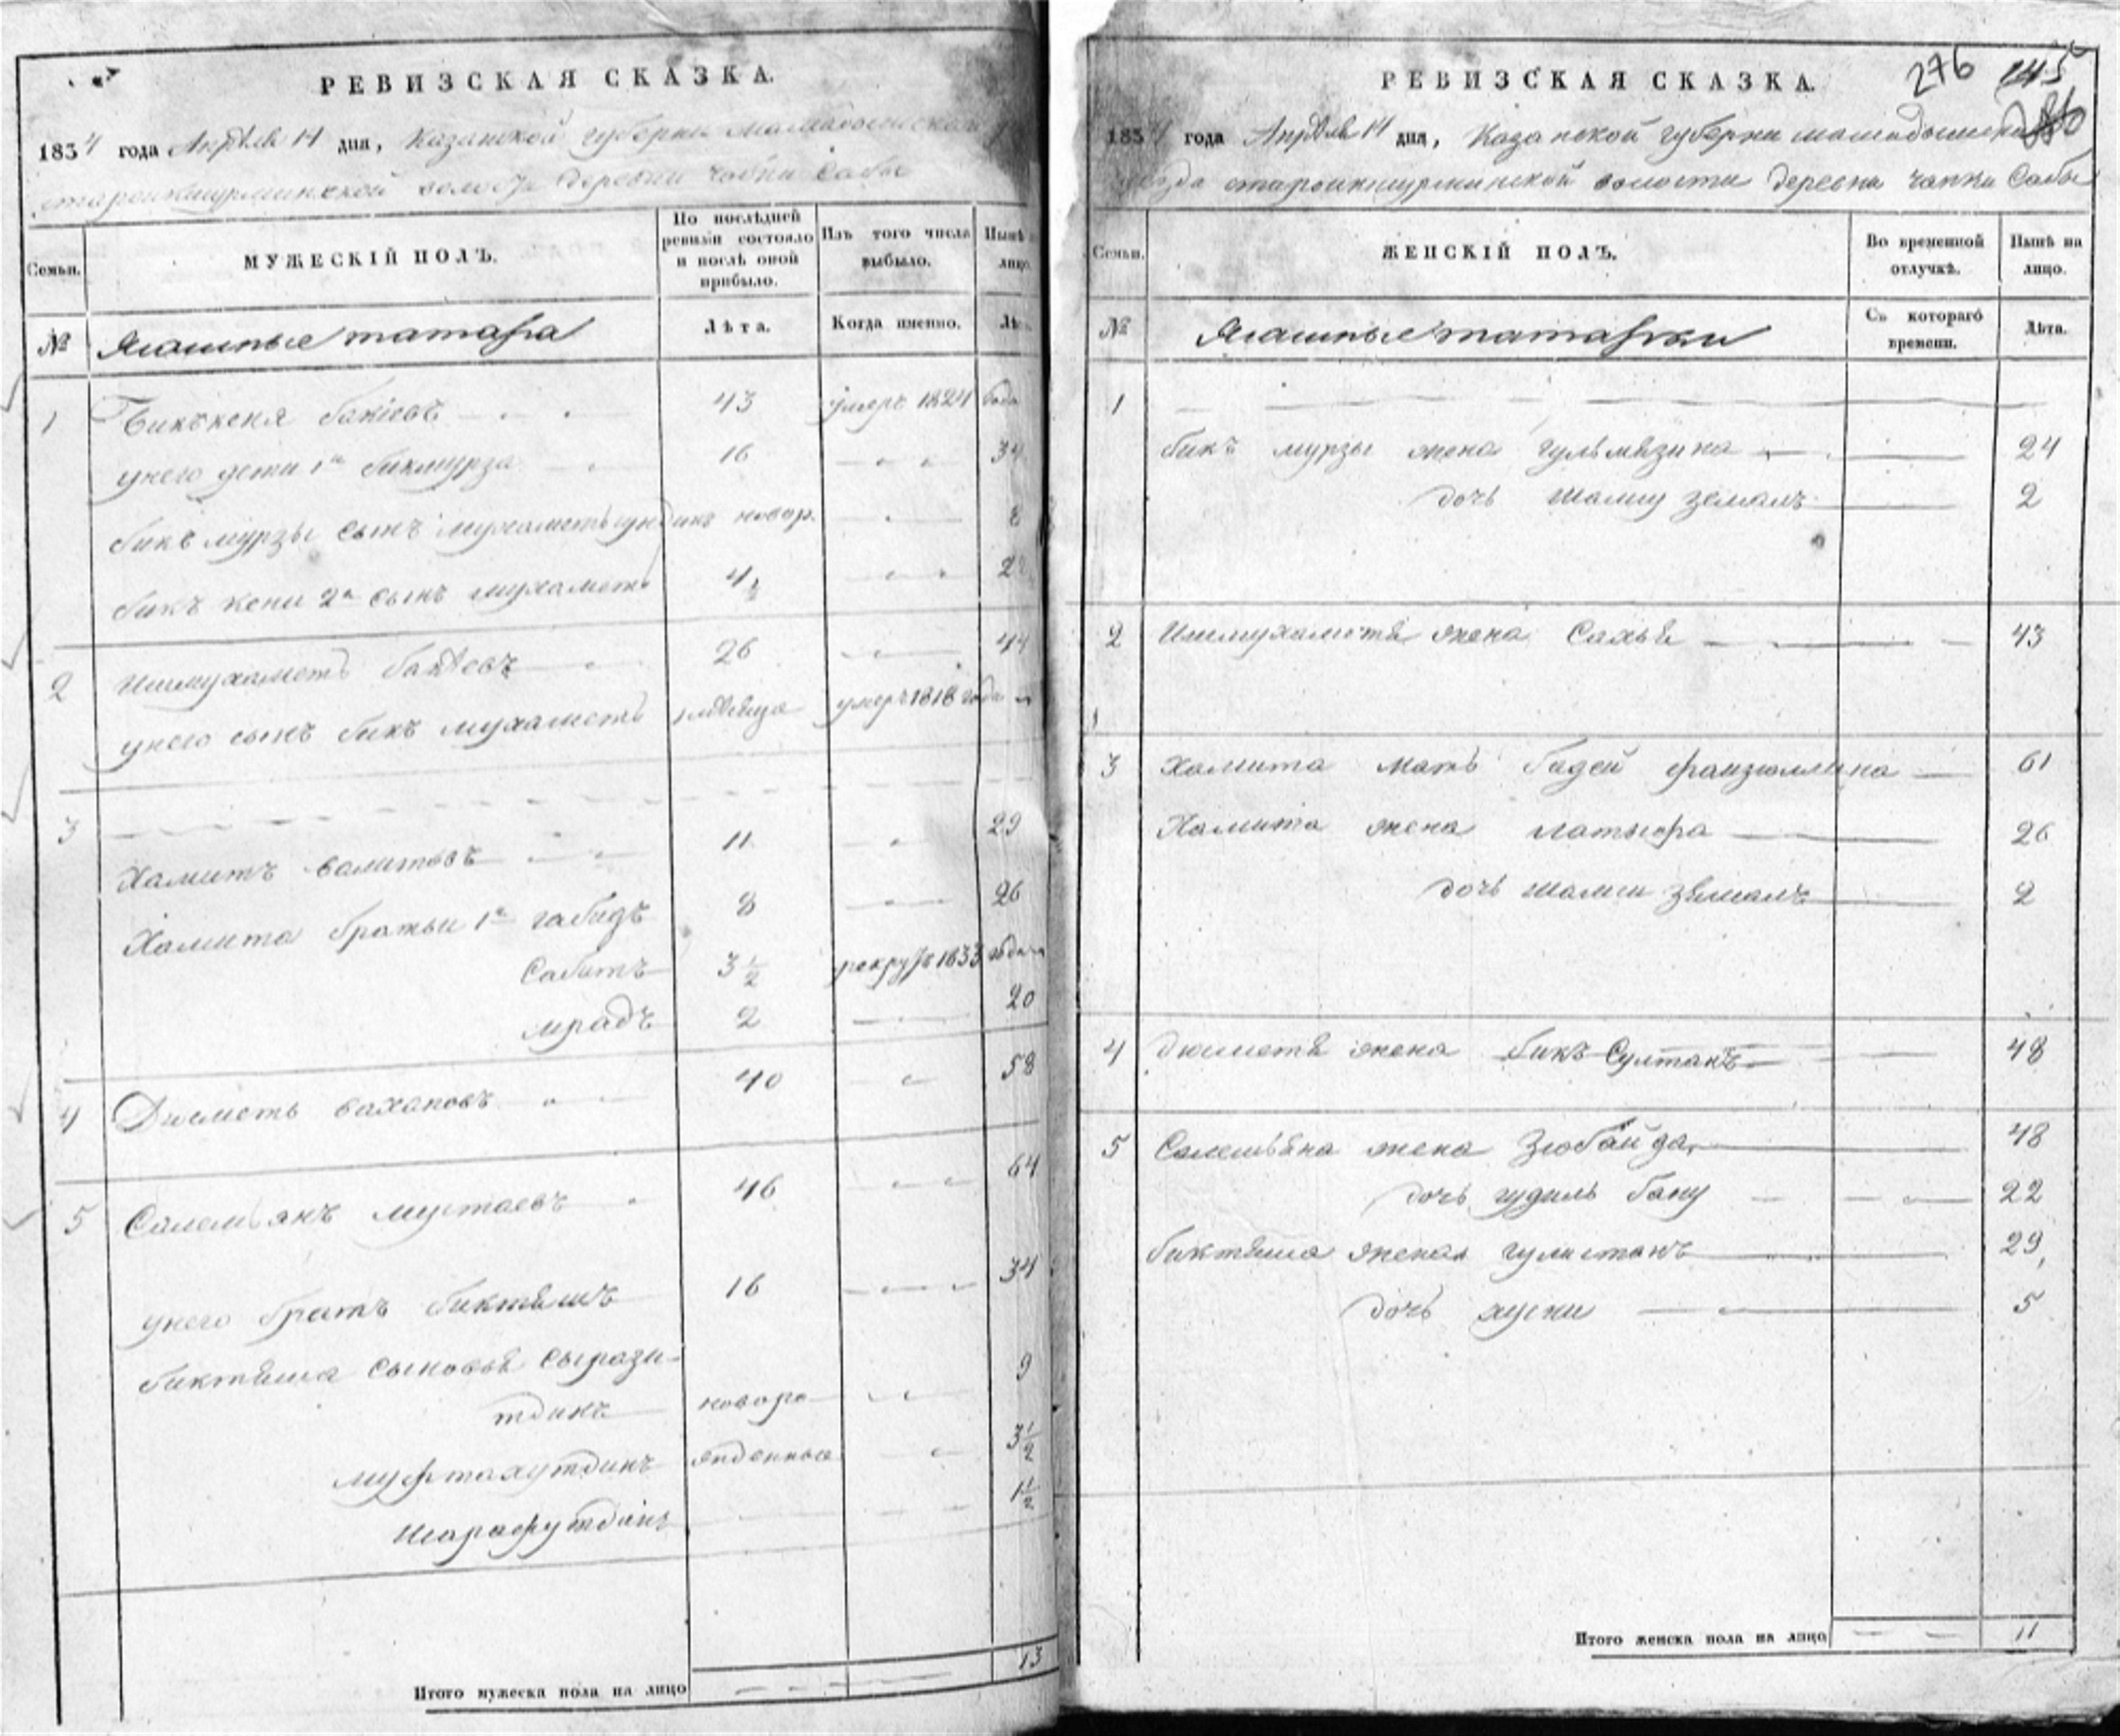 РЕВИЗСКАЯ СКАЗКА.
1834 года Апреля 14 дня, Казанской губернии мамадышской
староикшурминской волости деревни чабки сабы
Семьи.
МУЖЕСКІЙ ПОЛЪ.
По послѣдней ревизіи состояло и послѣ оной прибыло.
Изъ того числа выбыло.
Нынѣ на лицо.
№
Ясашные татара
Лѣта.
Когда именно.
Лѣта.
1 Бикъкеня бакіевъ 43 умеръ 1824 года
у него дети 1й бикмурза 16 34
бикъ мурзы сынъ мухаметьзянъ новор. 8
бикъ кени 2й сынъ мухаметь 4½
2 Ишмухаметь бакѣевъ 26 44
у него сынъ бикъ мухаметь умеръ 1818 года
3
Хамитъ валитовъ 11 29
Хамита братьи 1й габидъ 8 26
Сабитъ 3½ рекрутъ 1833 года
мрадъ 2 20
4 Дюсметь вахаповъ 40 58
5 Салемьянъ мустаевъ 46 64
у него братъ биктѣшъ 16 34
биктѣша сыновья сырази-
тдинъ новоро 9
муфтахутдинъ жденные 3½
Шарафутдинъ 1½
Итого мужеска пола на лицо 13
276 145
РЕВИЗСКАЯ СКАЗКА.
1834 года Апрѣля 14 дня, Казанской губерни мамадышской
уезда староикшурминской волости деревни чапки сабы
Семьи.
ЖЕНСКІЙ ПОЛЪ.
Во временной отлучкѣ.
Нынѣ на лицо.
№
Ясашные татарки
Съ котораго времени.
Лѣта.
1
бикъ мурзы жена гульмязина 24
дочь шамшу земалъ 2
2 Ишмухаметя жена Сахья 43
3 Хамита мать бадей фаизюллина 61
Хамита жена латыфа 26
дочь шамси земалъ 2
4 дюсметя жена бикъ Султанъ 48
5 Салемьяна жена Зюбайда 48
дочь гудиль бану 22
биктяша жена гулистанъ 29
дочь хусни 5
Итого женска пола на лицо 11